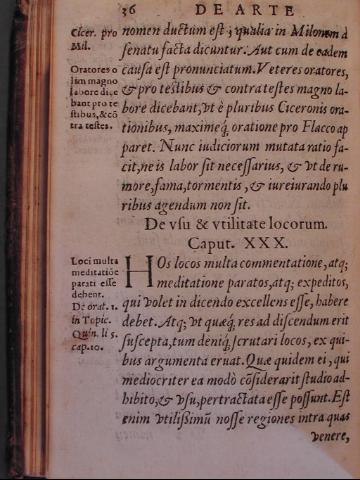 36 DE ARTE
Cicer. pro
Mil.
nomen ductum est; qualia in Milonem à
senatu facta dicuntur. Aut cum de eadem
Oratores o
lim magno
labore dice
bant pro te
stibus, & cō
tra testes.
causa est pronunciatum. Veteres oratores,
& pro testibus & contra testes magno la-
bore dicebant, vt è pluribus Ciceronis ora-
tionibus, maximeq́; oratione pro Flacco ap
paret. Nunc iudiciorum mutata ratio fa-
cit, ne is labor sit necessarius, & vt de ru-
more, fama, tormentis, & iureiurando plu
ribus agendum non sit.
De vsu & vtilitate locorum.
Caput. XXX.
Loci multa
meditatiōe
parati esse
debent.
De orat. 1.
in Topic.
Quin. li 5.
cap. 10.
HOs locos multa commentatione, atq;
meditatione paratos, atq; expeditos,
qui volet in dicendo excellens esse, habere
debet. Atq; vt quæq́; res ad discendum erit
suscepta, tum deniq; scrutari locos, ex qui-
bus argumenta eruat. Quæ quidem ei, qui
mediocriter ea modò cōsiderarit studio ad-
hibito, & vsu, pertractata esse possunt. Est
enim vtilissimū nosse regiones intra quas
venere,